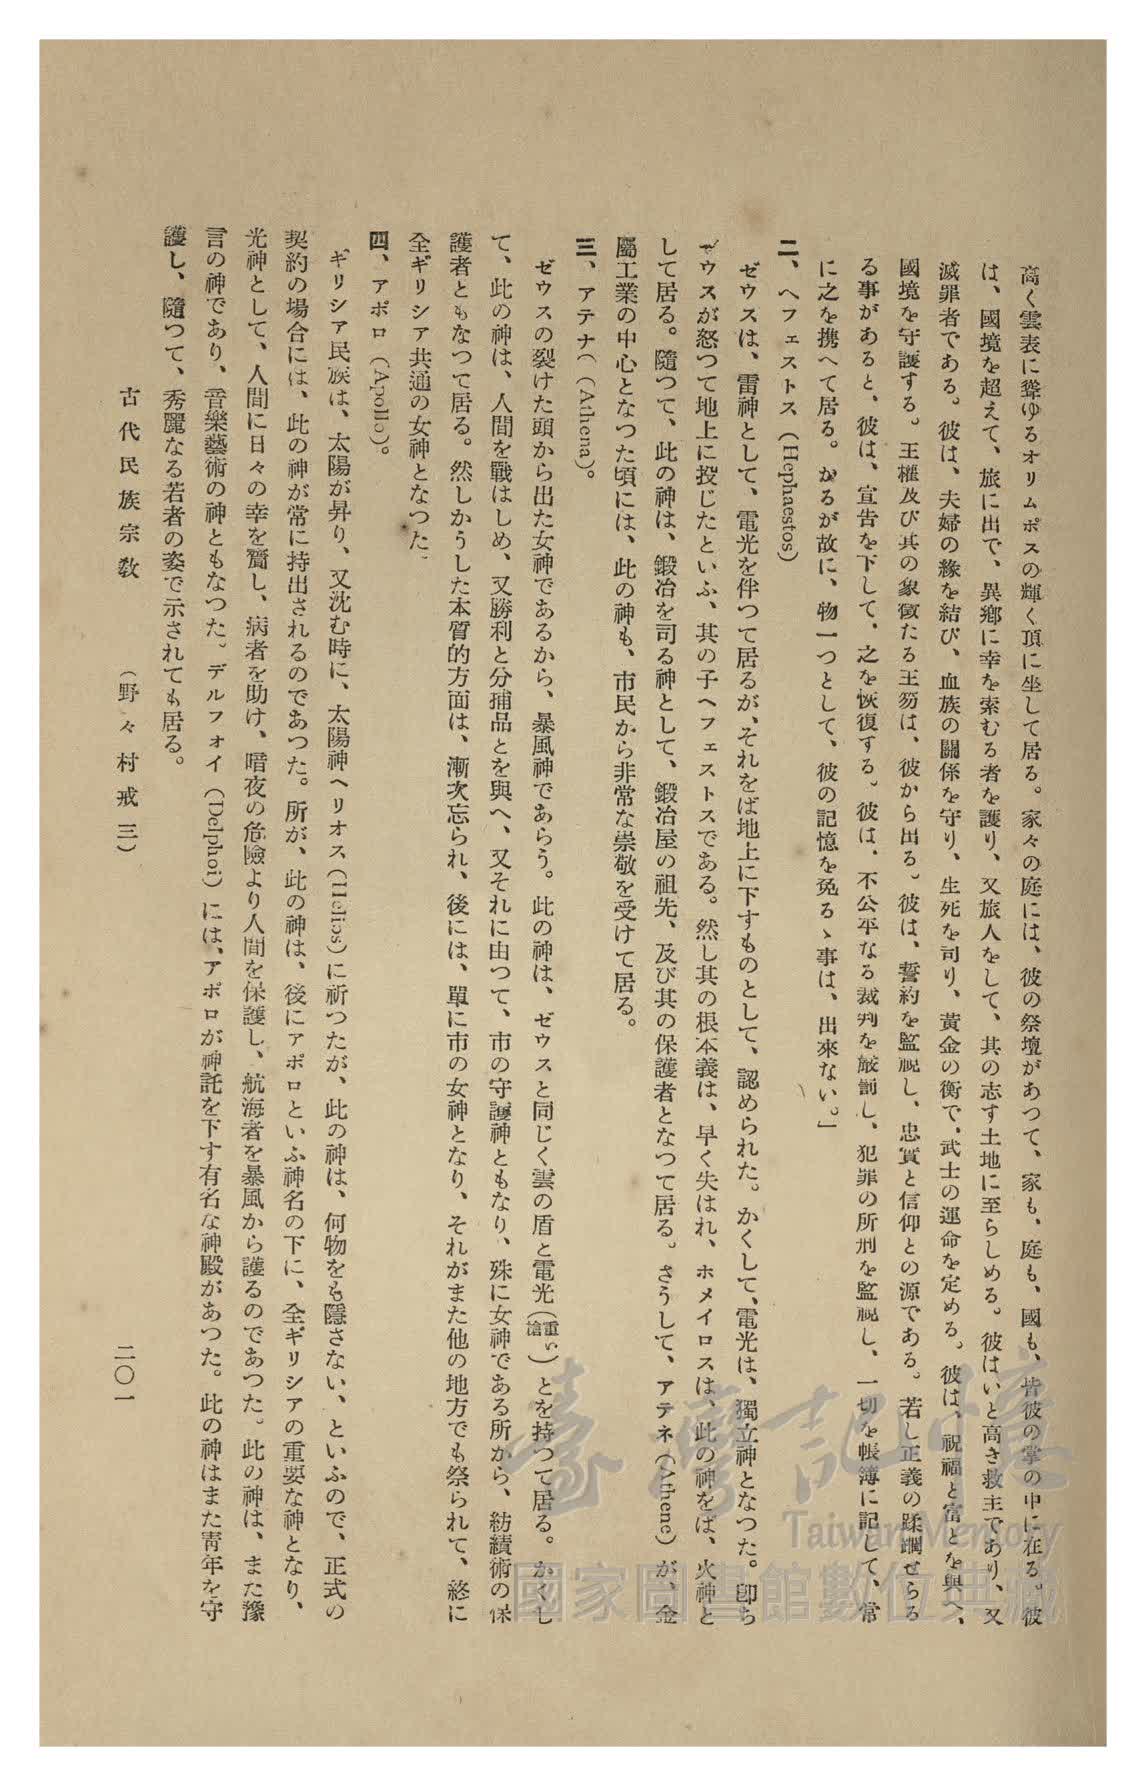 高く雲表に聳ゆるオリムポスの輝く頂に坐して居る。家々の庭には、彼の祭壇があつて、家も、庭も、國も、皆彼の掌の中に在る。彼
は、國境を超えて、旅に出で、異鄕に幸を索むる者を護り、又旅人をして、其の志す土地に至らしめる。彼はいと高き救主であり、又
滅罪者である。彼は、夫婦の緣を結び、血族の關係を守り、生死を司り、黃金の衡で、武士の運命を定める。彼は、祝福と富とを與へ、
國境を守護する。王權及び其の象徵たる王笏は、彼から出る。彼は、誓約を監視し、忠實と信仰との源である。若し正義の蹂躙せらる
る事があると、彼は、宣告を下して、之を恢復する。彼は、不公平なる裁判を嚴罰し、犯罪の所刑を監視し、一切を帳簿に記して、常
に之を携へて居る。かるが故に、物一つとして、彼の記憶を免るゝ事は、出來ない。」
二、ヘフェストス（Hephaestos）
ゼウスは、雷神として、電光を伴つて居るが、それをば地上に下すものとして、認められた。かくして、電光は、獨立神となつた。卽ち
ゼウスが怒つて地上に投じたといふ、其の子ヘフェストスである。然し其の根本義は、早く失はれ、ホメイロスは、此の神をば、火神と
して居る。隨つて、此の神は、鍛冶を司る神として、鍛冶屋の祖先、及び其の保護者となつて居る。さうして、アテネ（Athene）が、金
屬工業の中心となつた頃には、此の神も、市民から非常な崇敬を受けて居る。
三、アテナ（（Athena）。
ゼウスの裂けた頭から出た女神であるから、暴風神であらう。此の神は、ゼウスと同じく雲の盾と電光（重い槍）とを持つて居る。かくし
て、此の神は、人間を戰はしめ、又勝利と分捕品とを與へ、又それに由つて、市の守護神ともなり、殊に女神である所から、紡績術の保
護者ともなつて居る。然しかうした本質的方面は、漸次忘られ、後には、單に市の女神となり、それがまた他の地方でも祭られて、終に
全ギリシア共通の女神となつた。
四、アポロ（Apollo）。
ギリシア民族は、太陽が昇り、又沈む時に、太陽神ヘリオス（Helios）に祈つたが、此の神は、何物をも隱さない、といふので、正式の
契約の場合には、此の神が常に持出されるのであつた。所が、此の神は、後にアポロといふ神名の下に、全ギリシアの重要な神となり、
光神として、人間に日々の幸を齎し、病者を助け、暗夜の危險より人間を保護し、航海者を暴風から護るのであつた。此の神は、また豫
言の神であり、音樂藝術の神ともなつた。デルフォイ（Delphoi）には、アポロが神託を下す有名な神殿があつた。此の神はまた靑年を守
護し、隨つて、秀麗なる若者の姿で示されても居る。
古代民族宗敎　（野々村戒三）　二〇一
臺灣記憶
Taiwan Memory
國家圖書館數位典藏